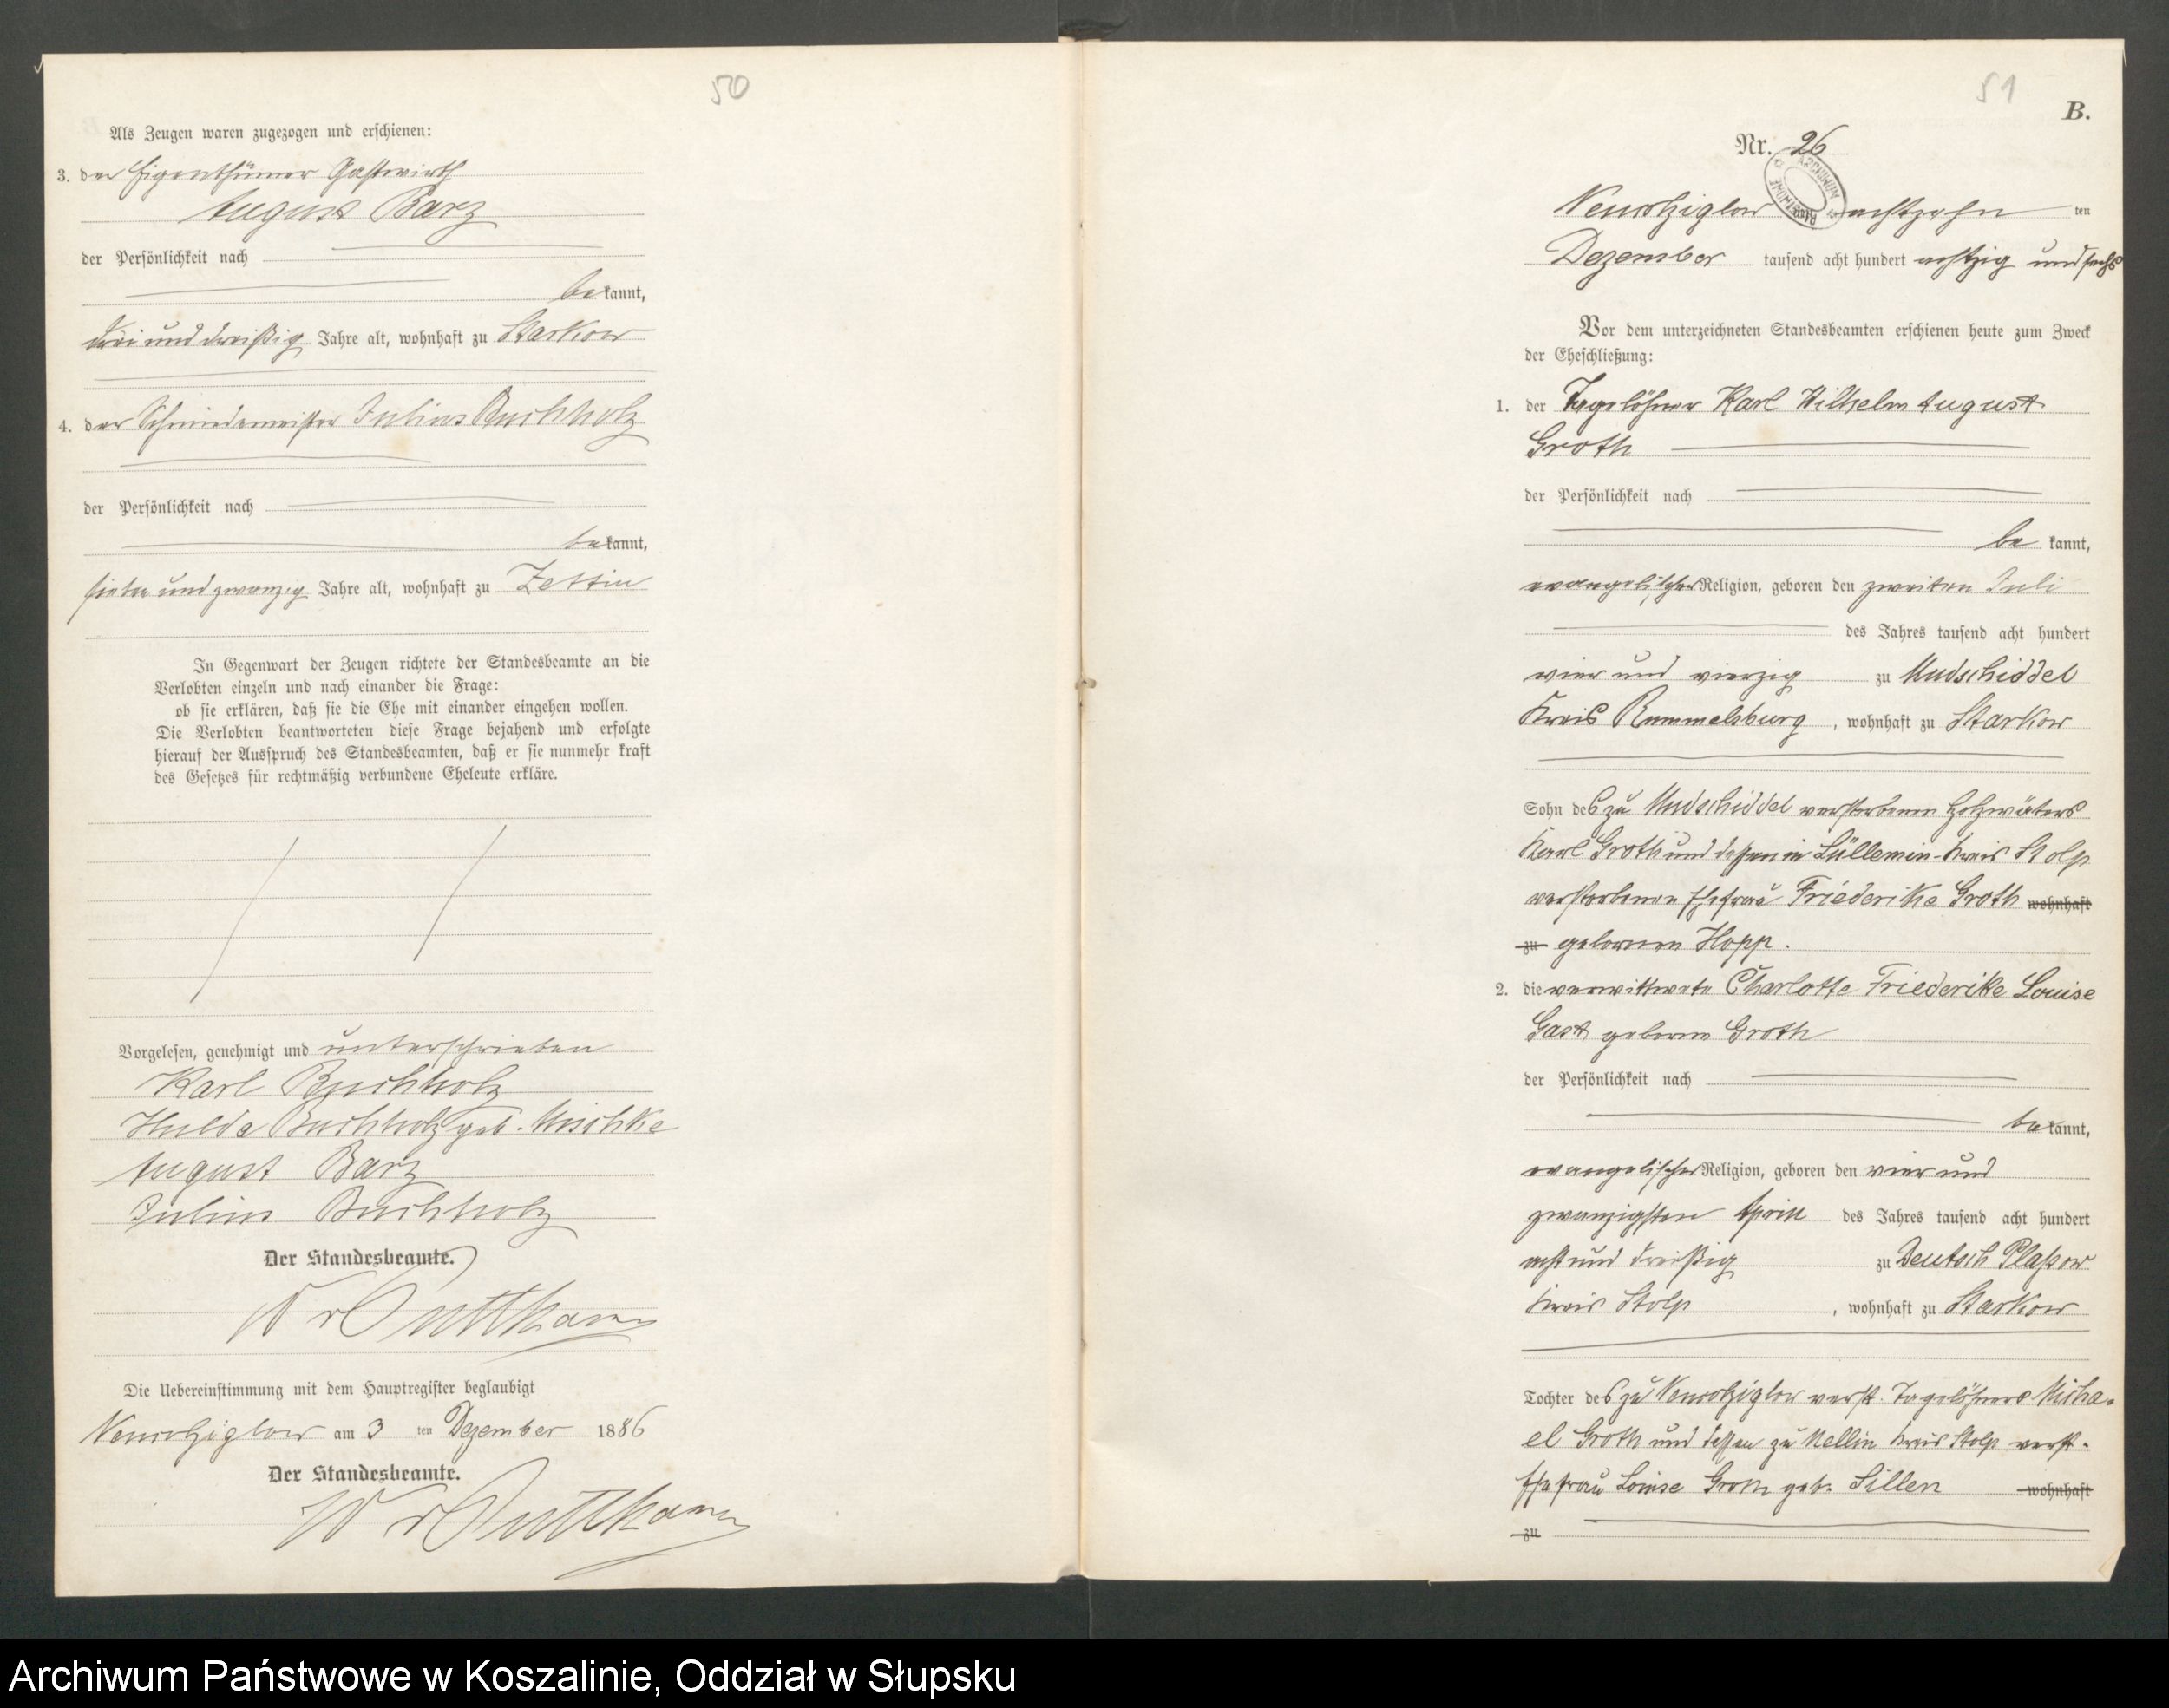 50
Als Zeugen waren zugezogen und erschienen:
3. der Eigenthümer Gastwirth
August Barz
der Persönlichkeit nach
bekannt,
drei und dreißig Jahre alt, wohnhaft zu Starkow
4. der Schmiedemeister Julius Buchholz
der Persönlichkeit nach
bekannt,
sieben und zwanzig Jahre alt, wohnhaft zu Zettin
In Gegenwart der Zeugen richtete der Standesbeamte an die
Verlobten einzeln und nach einander die Frage:
ob sie erklären, daß sie die Ehe mit einander eingehen wollen.
Die Verlobten beantworteten diese Frage bejahend und erfolgte
hierauf der Ausspruch des Standesbeamten, daß er sie nunmehr kraft
des Gesetzes für rechtmäßig verbundene Eheleute erkläre.
Vorgelesen, genehmigt und unterschrieben
Karl Buchholz
Hulda Buchholz geb. Mischke
August Barz
Julius Buchholz
Der Standesbeamte.
W v Puttkamer
Die Uebereinstimmung mit dem Hauptregister beglaubigt
Neuwobziglow am 3 ten Dezember 1886
Der Standesbeamte.
W v Puttkamer
51
B.
Nr. 26
Neuwobziglow achtzehn ten
Dezember tausend acht hundert achtzig und sechs
Vor dem unterzeichneten Standesbeamten erschienen heute zum Zweck
der Eheschließung:
1. der Tagelöhner Karl Wilhelm August
Groth
der Persönlichkeit nach
be kannt,
evangelischer Religion, geboren den zweiten Juli
des Jahres tausend acht hundert
vier und vierzig zu Mudschiddel
Kreis Rummelsburg, wohnhaft zu Starkow
Sohn des zu Mudschiddel verstorbenen Holzwärters
Karl Groth und dessen in Lüllemin - Kreis Stolp
verstorbenen Ehefrau Friederike Groth wohnhaft
zu gebornen Hopp.
2. die verwittwete Charlotte Friederike Louise
Gast geborne Groth
der Persönlichkeit nach
bekannt,
evangelischer Religion, geboren den vier und
zwanzigsten April des Jahres tausend acht hundert
acht und dreißig zu Deutsch Plaßow
Kreis Stolp, wohnhaft zu Starkow
Tochter des zu Neuwobziglow verst. Tagelöhners Micha-
el Groth und dessen zu Nellin Kreis Stolp verst.
Ehefrau Louise Groth geb. Sillen wohnhaft
zu
Archiwum Państwowe w Koszalinie, Oddział w Słupsku